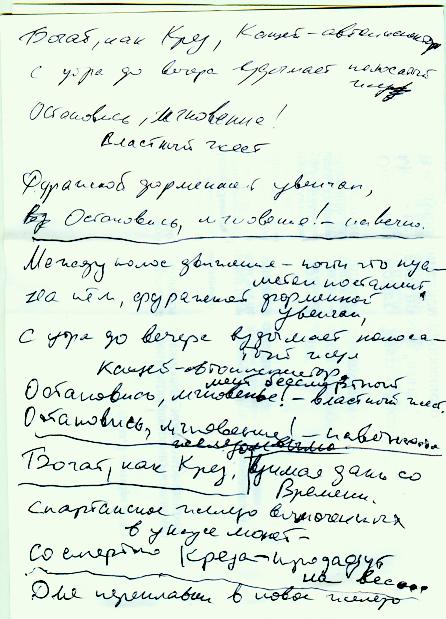 Богат, как Крез, Кащей-автоинспектор
с утра до вечера вздымает полосатый
жезл
Остановись, мгновение!
Властный жест
Фуражкой форменной увенчан,
Остановись, мгновенье! - навечно.
Между полос движения - почти что
метей постамент,
На нём, фуражкой форменной
увенчан,
с утра до вечера вздымает полоса-
тый жезл
Кащей-автоинспектор
Остановись, мгновенье! - властный жест
Остановись, мгновенье!
Богат, как Крез, взимая дань со
Времени.
спартанское железо
в уксусе монет-
Со смертью Креза - продадут
на вес...
Для переплавки в новое железо